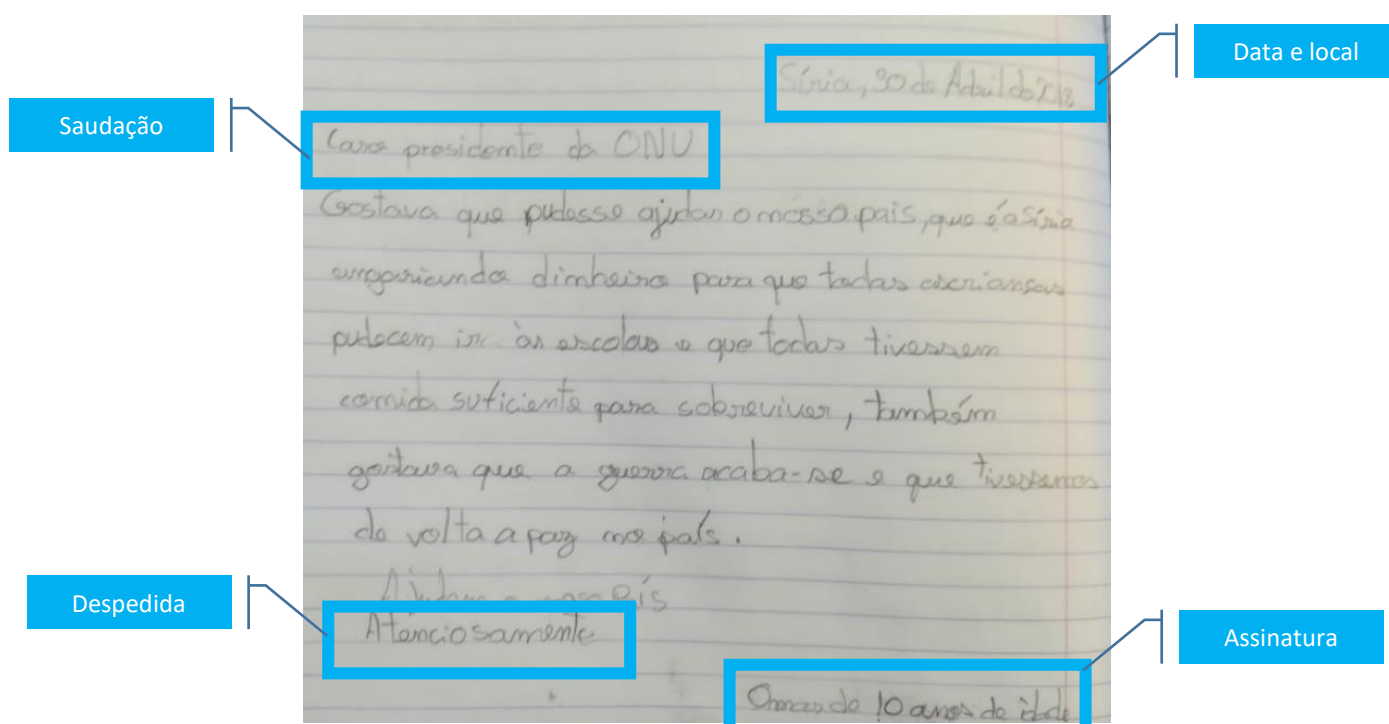 Data e local
Síria, 30 de Abril de
Saudação
Caro presidente da ONU
Gostava que pudesse ajudar o nosso país, que é a Síria
angariando dinheiro para que todas as crianças
pudecem ir às escolas e que todas tivessem
comida suficiente para sobreviver, também
gostava que a guerra acaba-se e que tivessemos
de volta a paz no país.
Ajudem o nosso País
Despedida
Atenciosamente
Assinatura
de 10 anos de idade